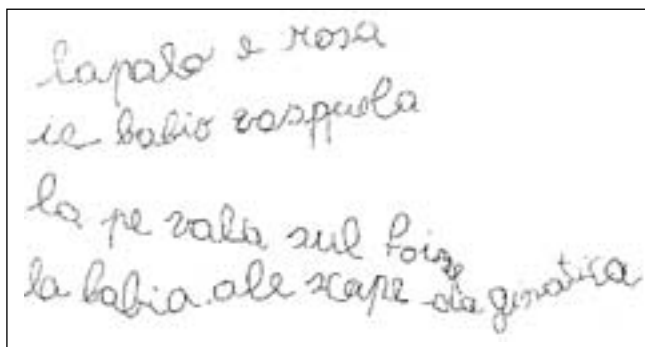 lapalo e rosa
ie babio vasqquola
la pe vala sul foire
la babia ale scape da ginatica